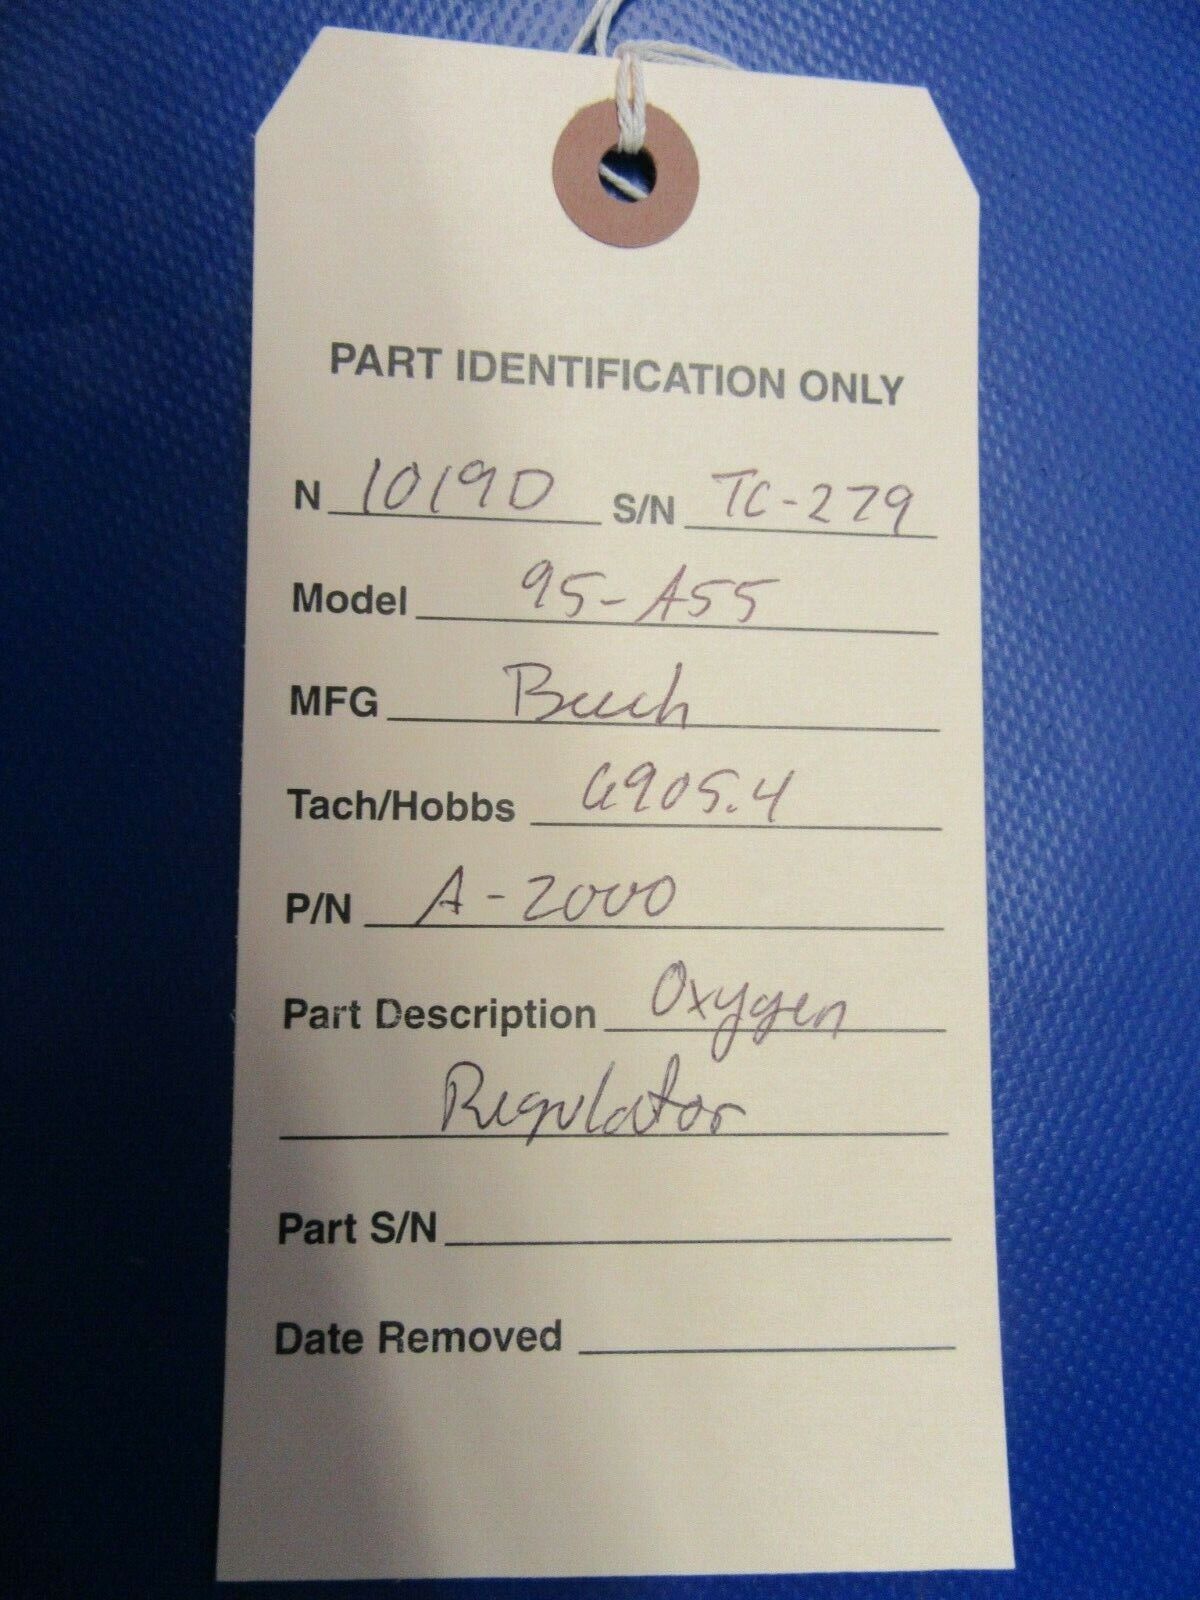 PART IDENTIFICATION ONLY
N 1019D S/N TC-279
Model 95-A55
MFG Beech
Tach/Hobbs 6905.4
P/N A-2000
Part Description Oxygen
Regulator
Part S/N
Date Removed